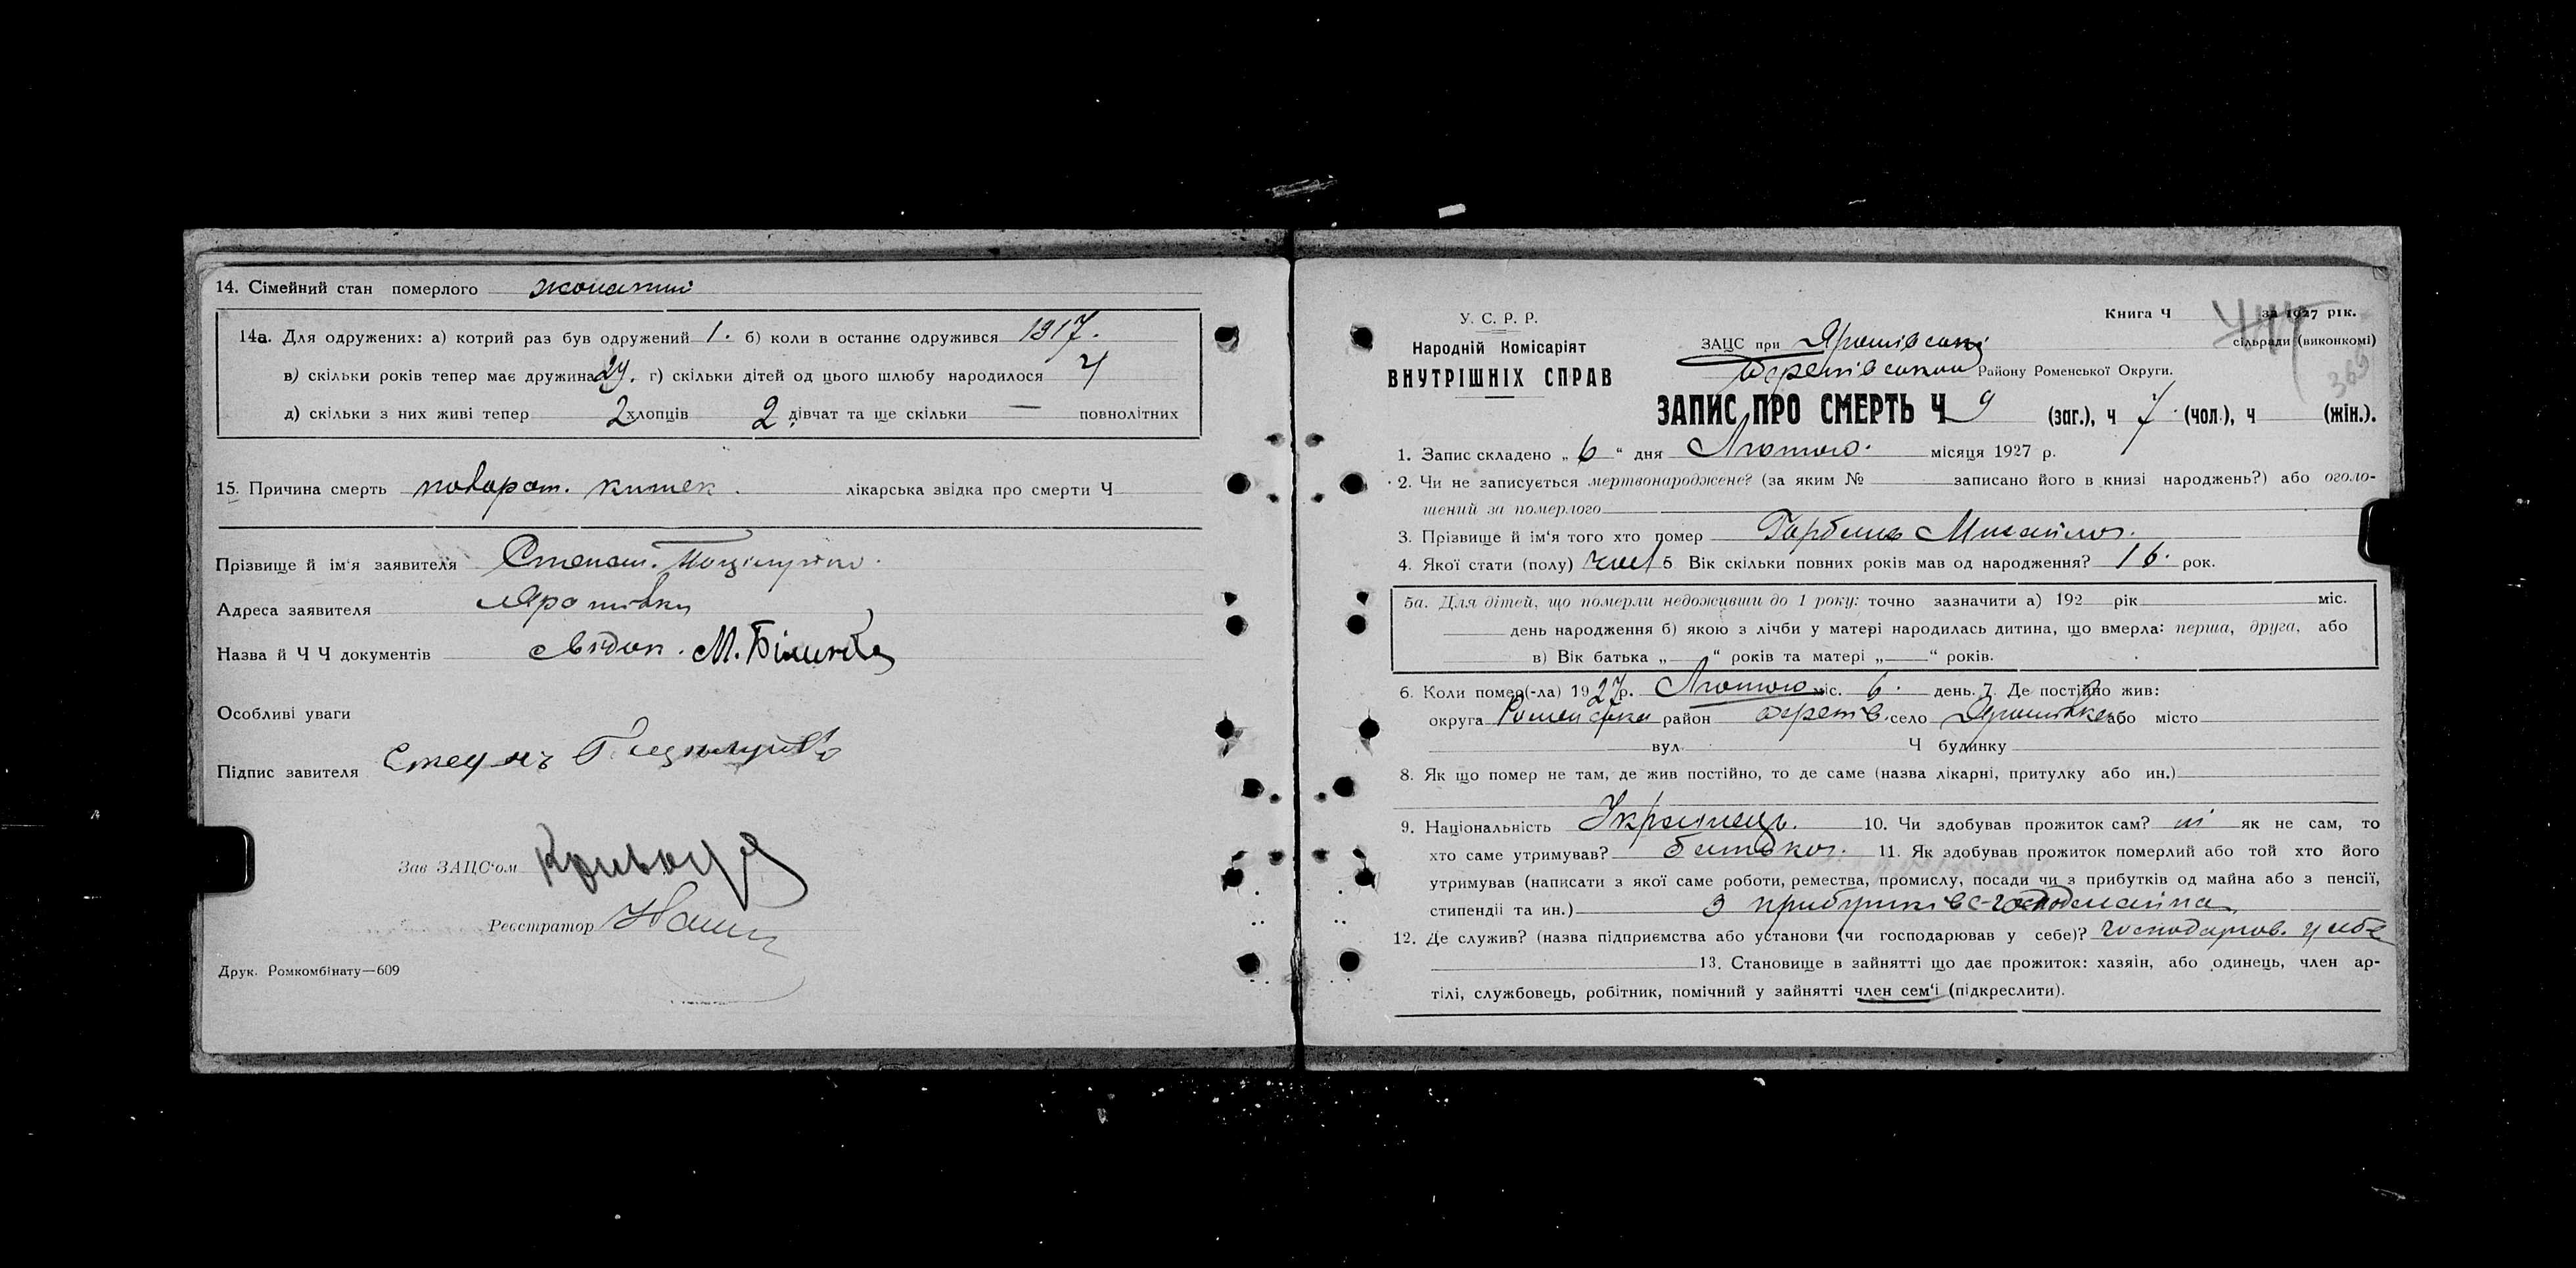 14. Сімейний стан померлого жонатий
14а. Для одружених: а) котрий раз був одружений 1. б) коли в останнє одружився 1917.
в) скільки років тепер має дружина 29. г) скільки дітей од цього шлюбу народилося 4
д) скільки з них живі тепер 2 хлопців 2 дівчат та ще скільки — повнолітних
15. Причина смерть поворот. кишек. лікарська звідка про смерти Ч
Прізвище й ім'я заявителя Степан.
Адреса заявителя Ярошівка
Назва й Ч Ч документів свідок. М.
Особливі уваги
Підпис завителя
Зав ЗАЦС'ом
Реєстратор
Друк. Ромкомбінату—609
Книга Ч за 1927 рік.
У. С. Р. Р.
Народній Комісаріят
ВНУТРІШНІХ СПРАВ
ЗАЦС при Ярошівській сільради (виконкомі)
Району Роменської Округи.
369
ЗАПИС ПРО СМЕРТЬ Ч 9 (заг.), ч 7. (чол.), ч (жін.).
1. Запис складено „ 6 “ дня Лютого. місяця 1927 р.
2. Чи не записується мертвонароджене? (за яким № записано його в книзі народжень?) або оголо-
шений за померлого
3. Прізвище й ім'я того хто помер Михайло.
4. Якої стати (полу) чол 5 Вік скільки повних років мав од народження? 16. рок.
5а. Для дітей, що померли недоживши до 1 року: точно зазначити а) 192 рік міс.
день народження б) якою з лічби у матері народилась дитина, що вмерла: перша, друга, або
в) Вік батька „ “ років та матері „ “ років.
6. Коли помер(-ла) 1927р. Лютого міс. 6. день. 7. Де постійно жив:
округа Роменська район село Ярошівка або місто
вул. Ч будинку
8. Як що помер не там, де жив постійно, то де саме (назва лікарні, притулку або ин.)
9. Національність Українець. 10. Чи здобував прожиток сам? ні як не сам, то
хто саме утримував? батько. 11. Як здобував прожиток померлий або той хто його
утримував (написати з якої саме роботи, ремества, промислу, посади чи з прибутків од майна або з пенсії,
стипендії та ин.) З прибутків
12. Де служив? (назва підприємства або установи (чи господарював у себе)? господарюв. у себе
13. Становище в зайнятті що дає прожиток: хазяін, або одинець, член ар-
тілі, службовець, робітник, помічний у зайнятті член сем'ї (підкреслити).